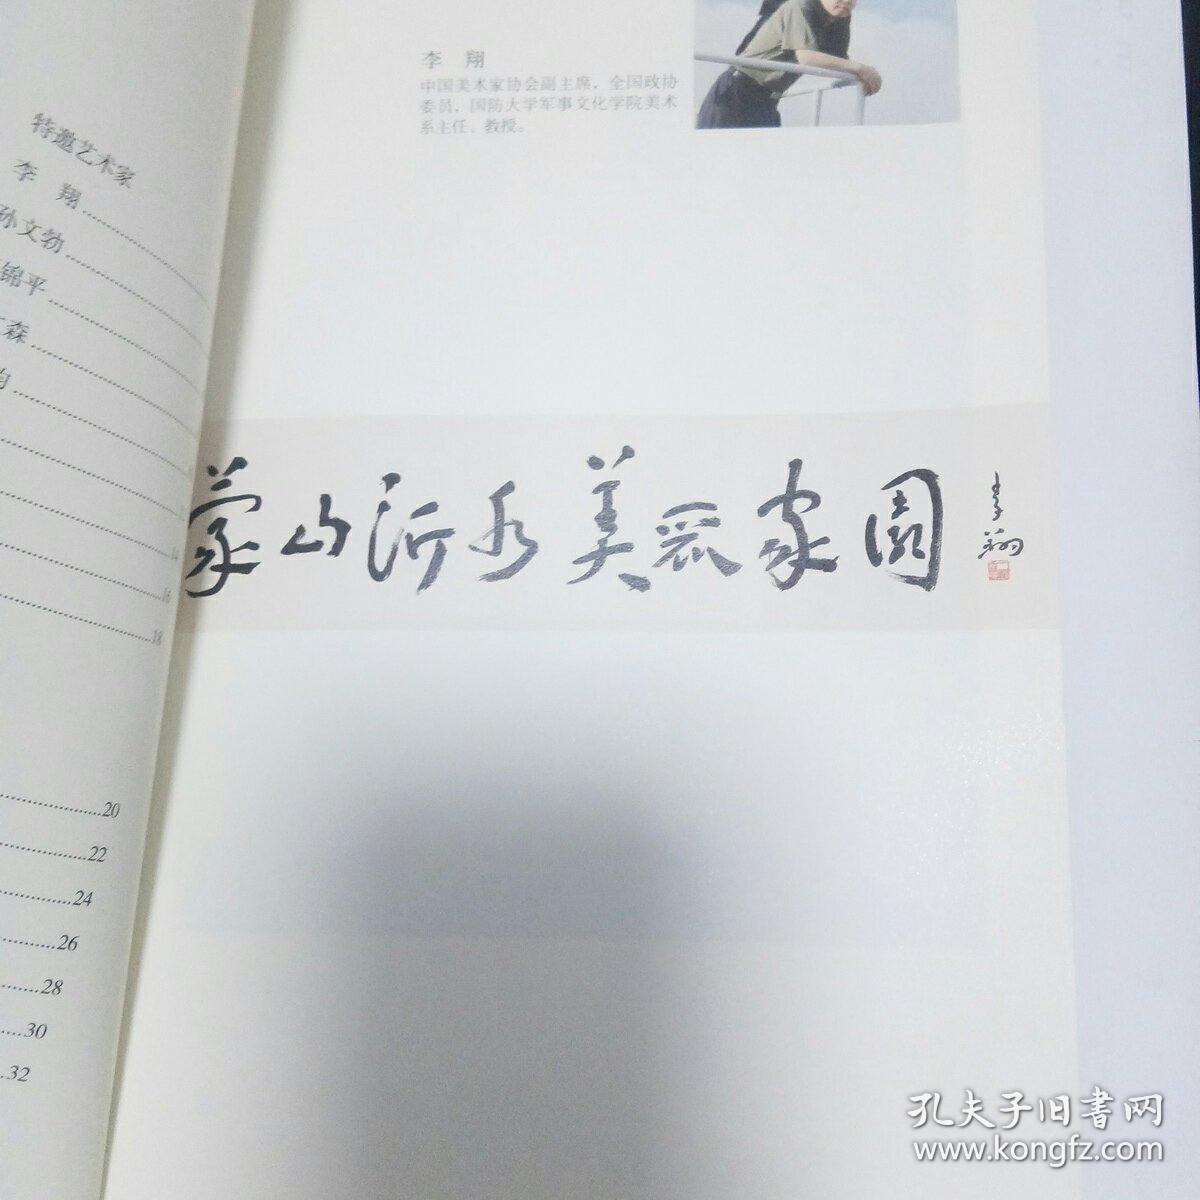 特邀艺术家
李 翔
孙文勃
锦平
森
14
16
18
20
22
24
26
28
30
32
李 翔
中国美术家协会副主席，全国政协
委员，国防大学军事文化学院美术
系主任、教授。
蒙山沂水美丽家园
李翔
孔夫子旧书网
www.kongfz.com